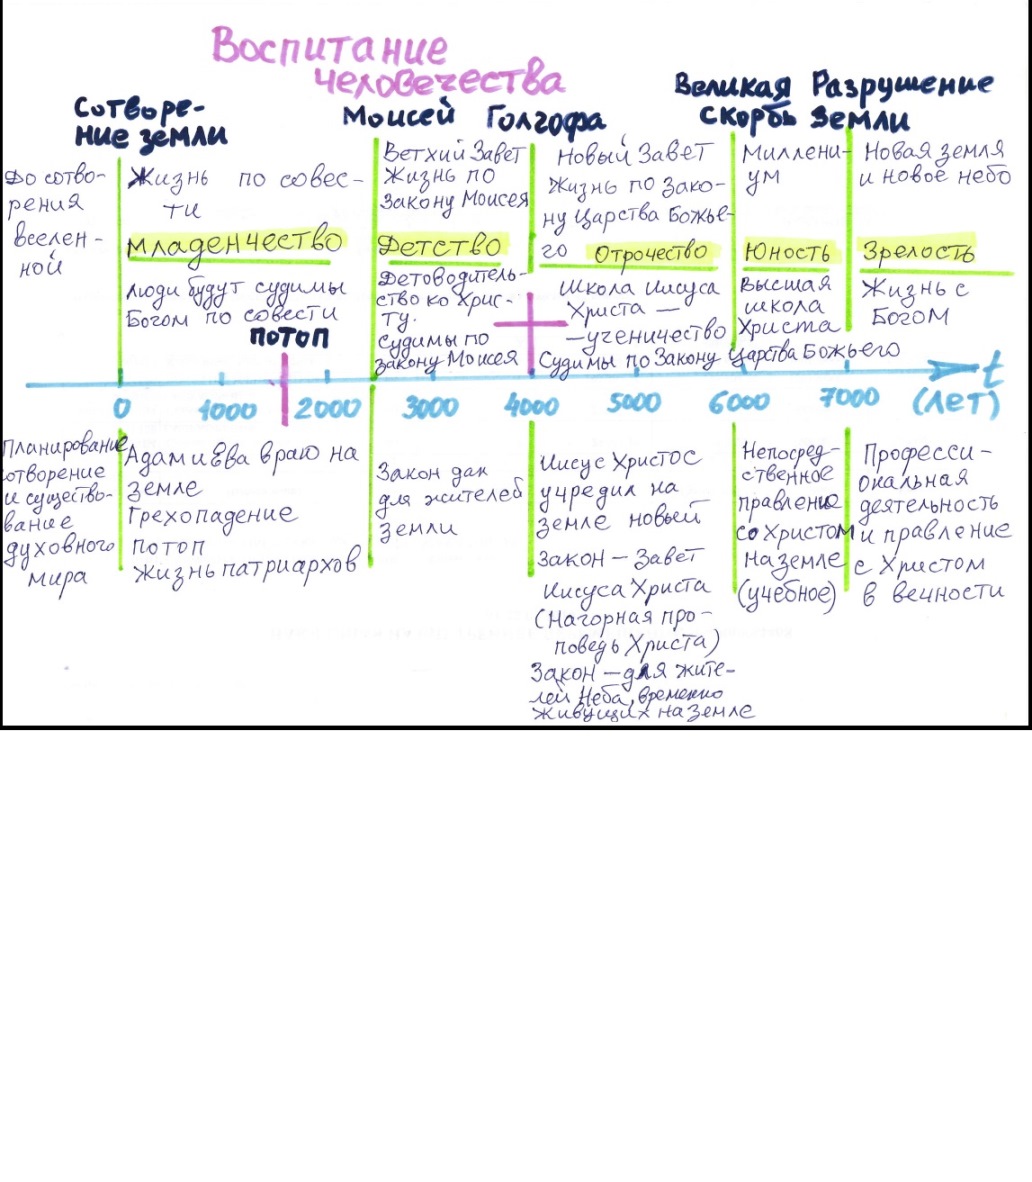 Воспитание
человечества
Сотворе-
ние земли
Моисей
Голгофа
Великая
скорбь
Разрушение
Земли
До сотво-
рения
вселен-
ной
Жизнь по совес-
ти
младенчество
люди будут судимы
Богом по совести
потоп
Ветхий Завет
Жизнь по
Закону Моисея
Детство
Детоводитель-
ство ко Хрис-
ту.
Судимы по
закону Моисея
Новый Завет
Жизнь по Зако-
ну Царства Божье-
го Отрочество
Школа Иисуса
Христа —
—ученичество
Судимы по Закону Царства Божьего
Миллени-
ум
Юность
высшая
школа
Христа
Новая земля
и новое небо
Зрелость
Жизнь с
Богом
t
0 1000 2000 3000 4000 5000 6000 7000 (лет)
Планирование
сотворение
и существо-
вание
духовного
мира
Адам и Ева в раю на
земле
Грехопадение
потоп
Жизнь патриархов
Закон дан
для жителей
Земли
Иисус Христос
учредил на
земле новый
закон — Завет
Иисуса Христа
(Нагорная про-
поведь Христа)
Закон — для жите-
лей Неба, временно
живущих на земле
Непосред-
ственное
правление
со Христом
на земле
(учебное)
Професси-
ональная
деятельность
и правление
с Христом
в вечности